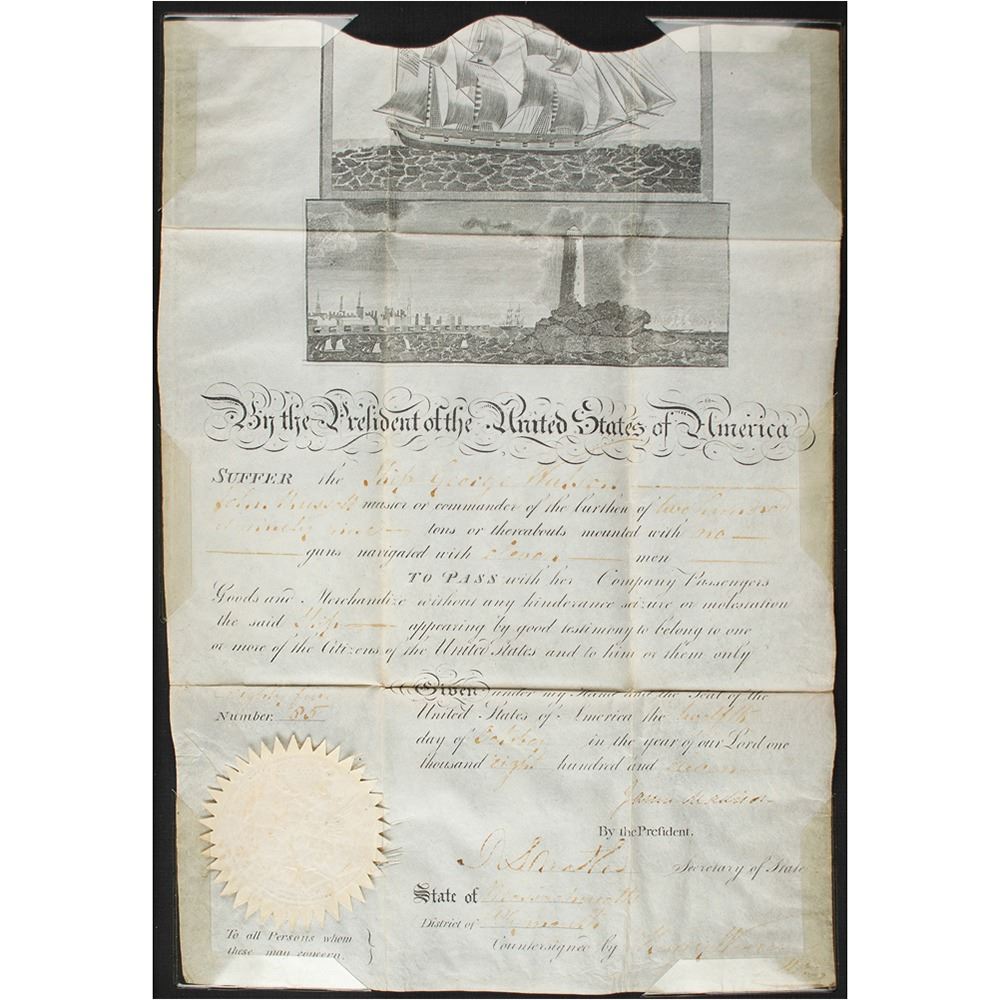 By the President of the United States of America
SUFFER the Ship George
John master or commander of the burthen of two hundred
ninety nine tons or thereabouts mounted with no
guns navigated with eleven men
TO PASS with her Company Passengers
Goods and Merchandize without any hinderance seizure or molestation
the said Ship appearing by good testimony to belong to one
or more of the Citizens of the United States and to him or them only
Eighty five
Number. 85
Given under my Hand and the Seal of the
United States of America the twelfth
day of October in the year of our Lord one
thousand eight hundred and eleven
James Madison
By the President.
Secretary of State
State of Massachusetts
District of Plymouth
Countersigned by Henry Warren
To all Persons whom
these may concern.